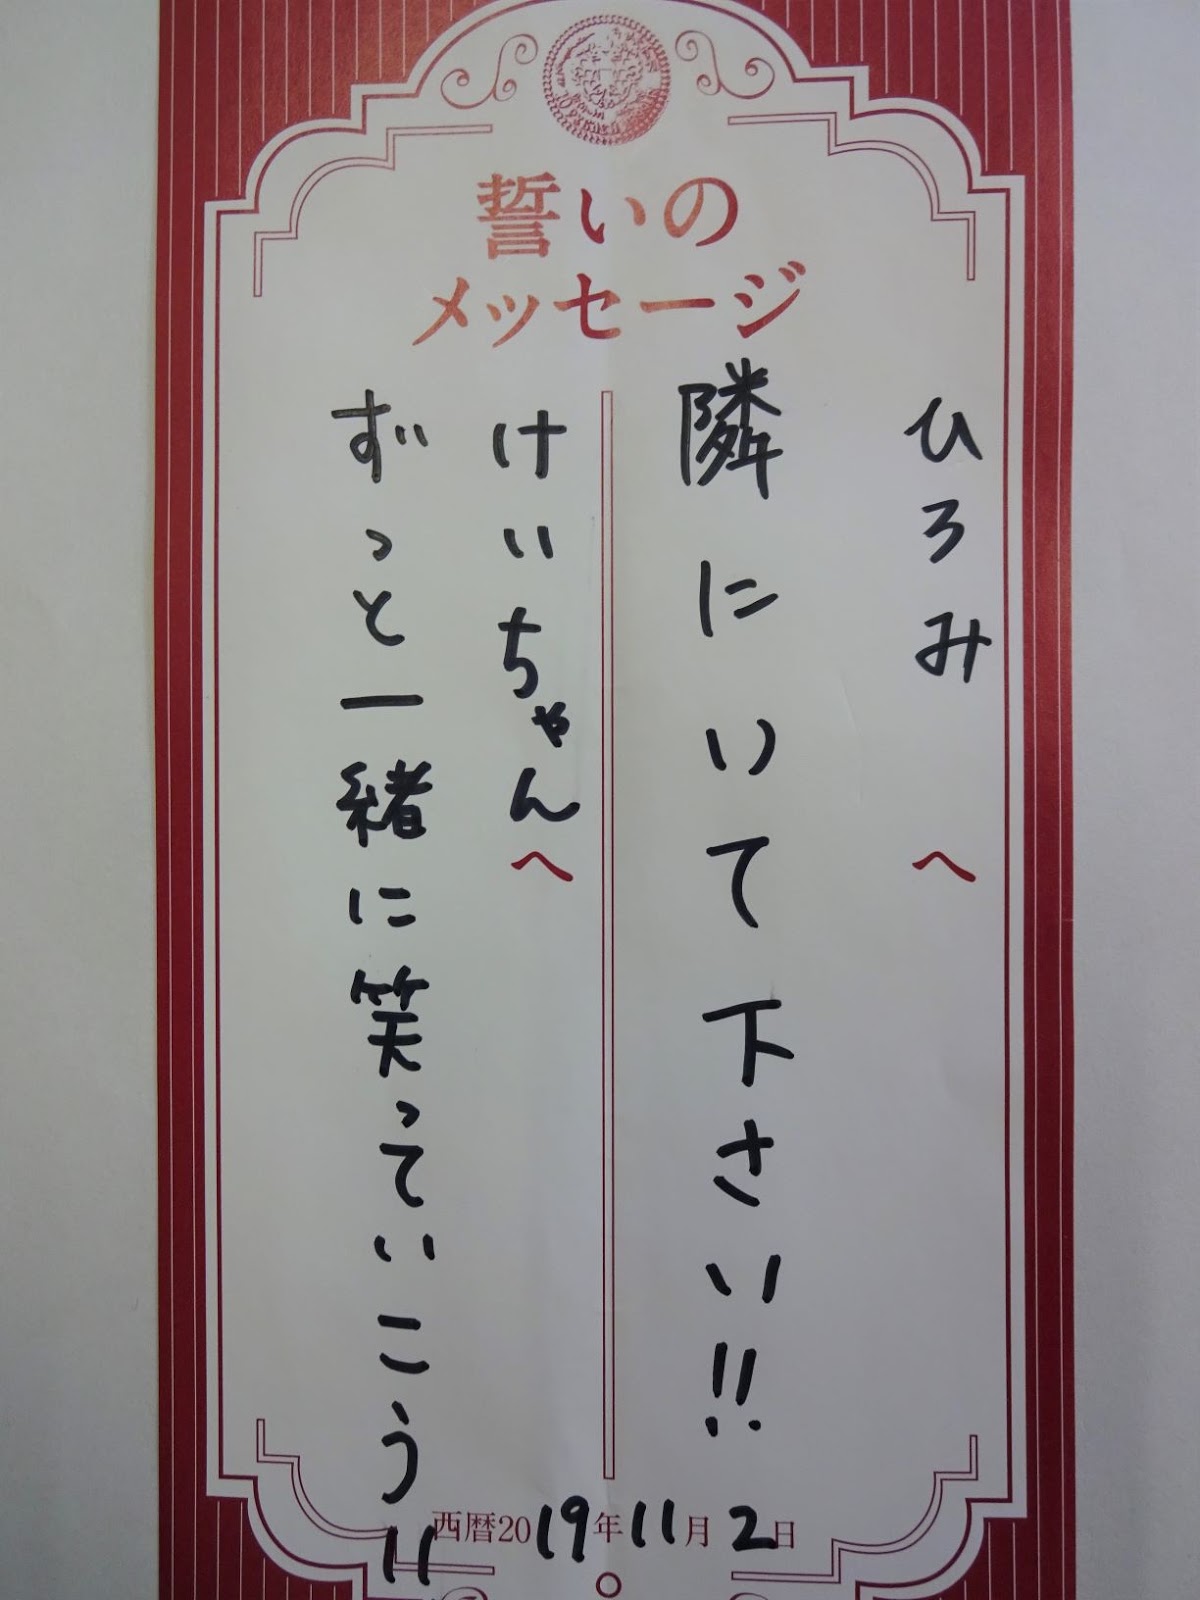 誓いの
メッセージ
ひろみ へ
隣にいて下さい!!
けいちゃんへ
ずっと一緒に笑っていこう!!
西暦2019年11月2日